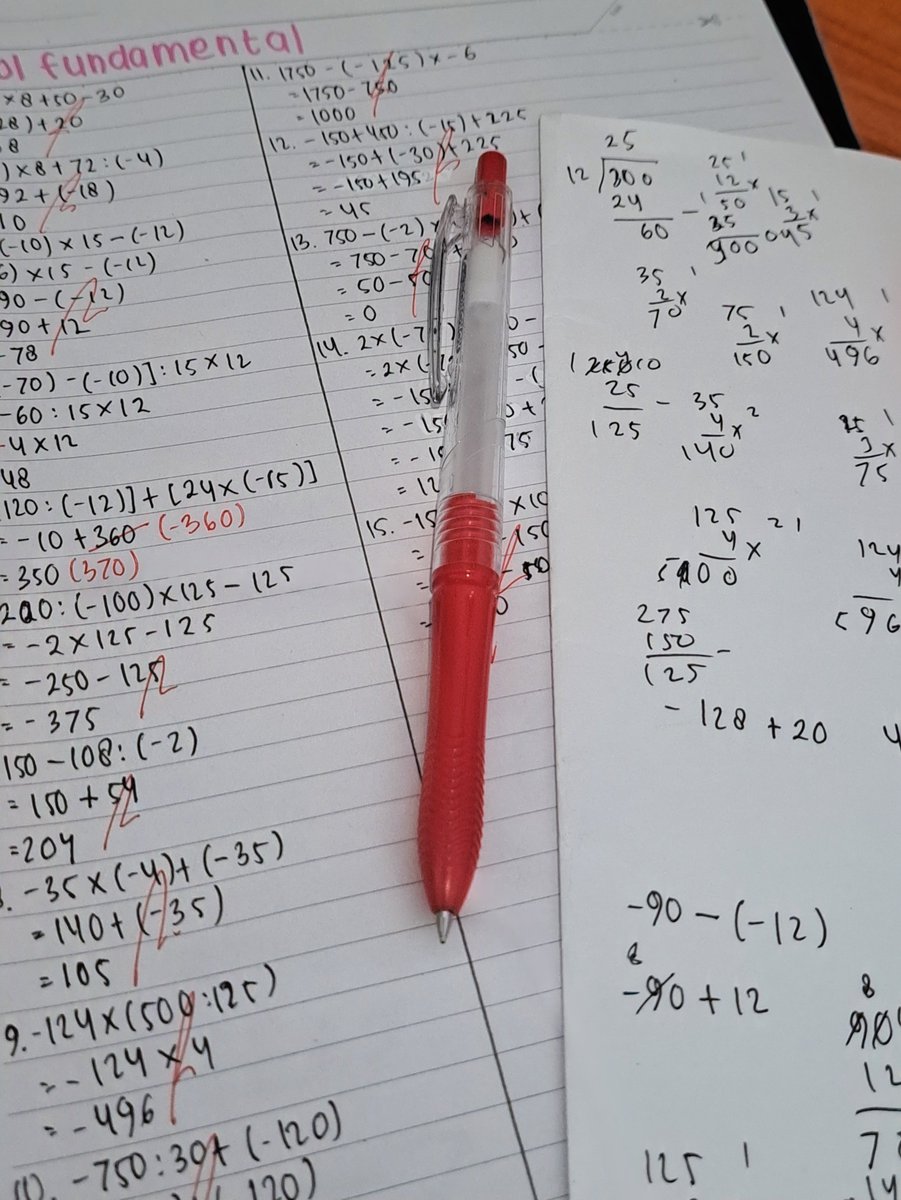 ol fundamental
×8+50-30
28)+20
8
)×8+72:(-4)
92+(-18)
10
(-10)×15-(-12)
6)×15-(-12)
90-(-12)
90+12
-78
-70)-(-10)]:15×12
-60:15×12
-4×12
48
120:(-12)]+[24×(-15)]
=-10+360 (-360)
=350 (370)
200:(-100)×125-125
=-2×125-125
=-250-125
=-375
150-108:(-2)
=150+54
=204
-35×(-4)+(-35)
=140+(-35)
=105
9.-124×(500:125)
=-124×4
=-496
-750:30+(-120)
120)
11. 1750-(-125)×-6
=1750-750
=1000
12. -150+450:(-15)+225
=-150+(-30)+225
=-150+195
=45
13. 750-(-2)
=750-7
=50-50
=0
14. 2×(-7
=2×(-
=-15
=-15
=-1
=12
0-
50-
-(
0+
75
15.-15
×10
150
50
0
25
12 /300
24
60 -
25 1
12 ×
50
25
300
15 1
3 ×
045
35 1
2 ×
70
75 1
2 ×
150
124 1
4 ×
496
25
125 -
35 2
4 ×
140
25 1
3 ×
75
125 2 1
4 ×
500
124
4
596
275
150 -
125
-128+20
-90-(-12)
8
-90+12
8
90
12
7
125 1
14